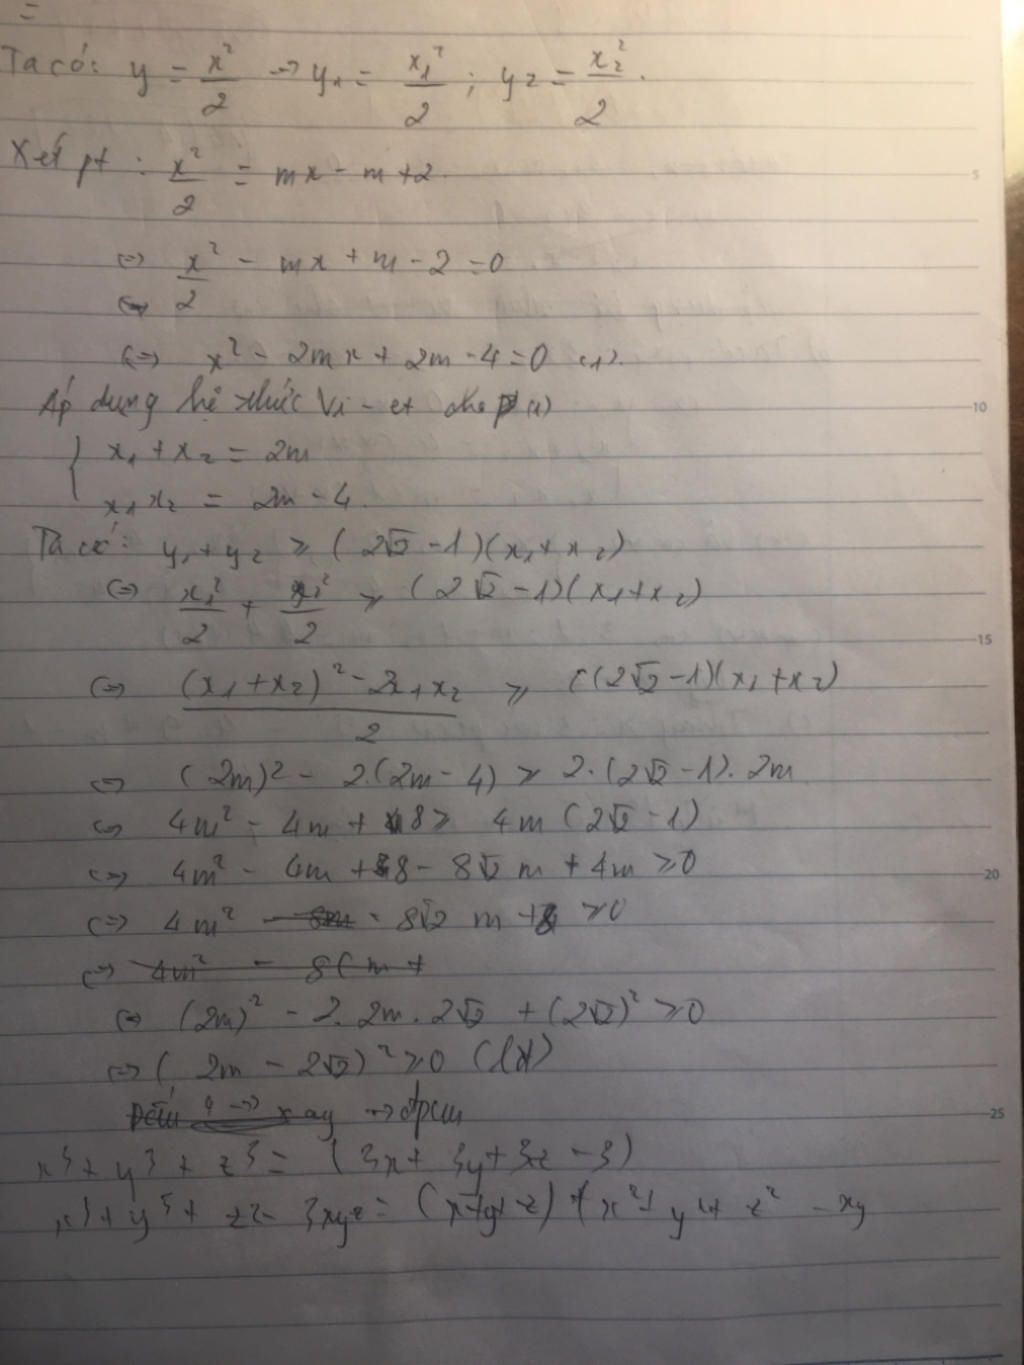 =
Ta có: y = x²/2 → y₁ = x₁²/2 ; y₂ = x₂²/2.
Xét pt : x²/2 = mx - m + 2.
⇔ x²/2 - mx + m - 2 = 0
⇔
⇔ x² - 2mx + 2m - 4 = 0 (1).
Áp dụng hệ thức Vi-et cho p (1)
{ x₁ + x₂ = 2m
x₁x₂ = 2m - 4.
Ta có: y₁ + y₂ ≥ (2√2 - 1)(x₁ + x₂)
⇔ x₁²/2 + x₂²/2 ≥ (2√2 - 1)(x₁ + x₂)
⇔ ((x₁ + x₂)² - 2x₁x₂)/2 ≥ ((2√2 - 1)(x₁ + x₂)
⇔ (2m)² - 2.(2m - 4) ≥ 2.(2√2 - 1).2m
⇔ 4m² - 4m + 8 ≥ 4m(2√2 - 1)
⇔ 4m² - 4m + 8 - 8√2 m + 4m ≥ 0
⇔ 4m² - 8m - 8√2 m + 8 ≥ 0
⇔ 4m² - 8(m +
⇔ (2m)² - 2.2m.2√2 + (2√2)² ≥ 0
⇔ (2m - 2√2)² ≥ 0 (lđ)
xay → đpcm
x³ + y³ + z³ = (3x + 3y + 3z - 3)
x³ + y³ + z³ - 3xyz = (x + y + z) + (x² + y² + z² - xy